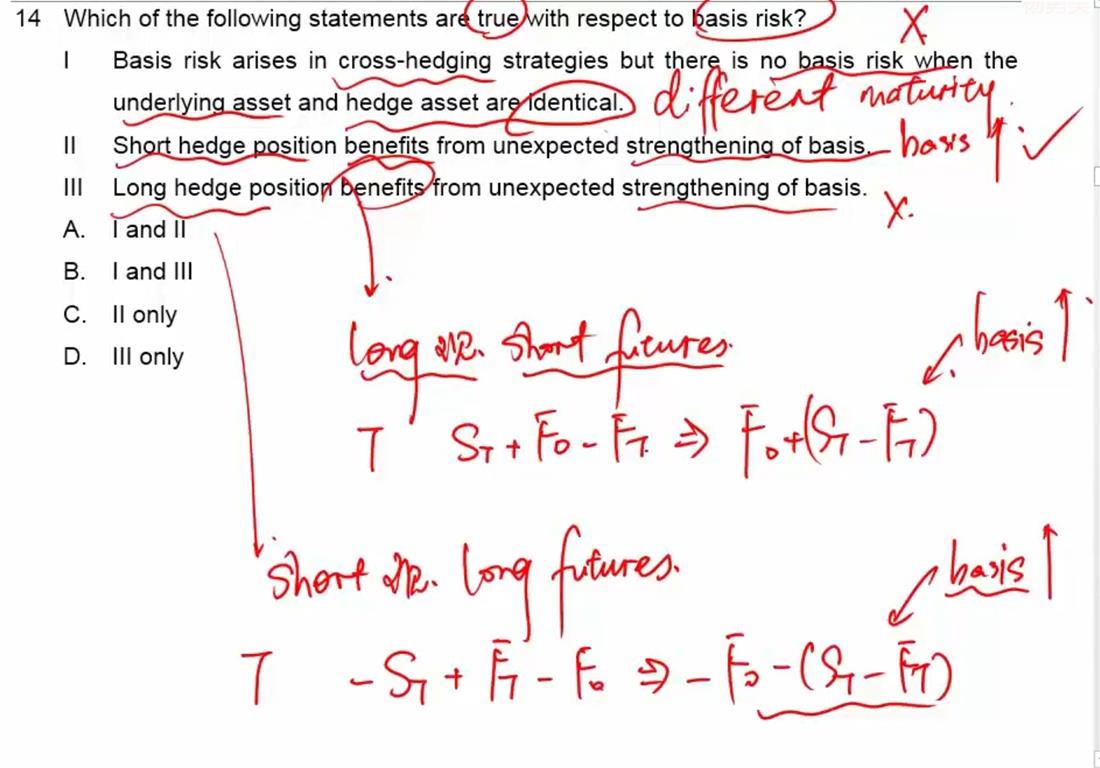 14 Which of the following statements are true with respect to basis risk? X
I Basis risk arises in cross-hedging strategies but there is no basis risk when the
underlying asset and hedge asset are identical. different maturity.
II Short hedge position benefits from unexpected strengthening of basis. basis ↑ ✓
III Long hedge position benefits from unexpected strengthening of basis. X.
A. I and II
B. I and III
C. II only
D. III only
long short futures.
basis ↑
T S_T + F_0 - F_T ⇒ F_0 + (S_T - F_T)
short long futures.
basis ↑
T - S_T + F_T - F_0 ⇒ - F_0 - (S_T - F_T)